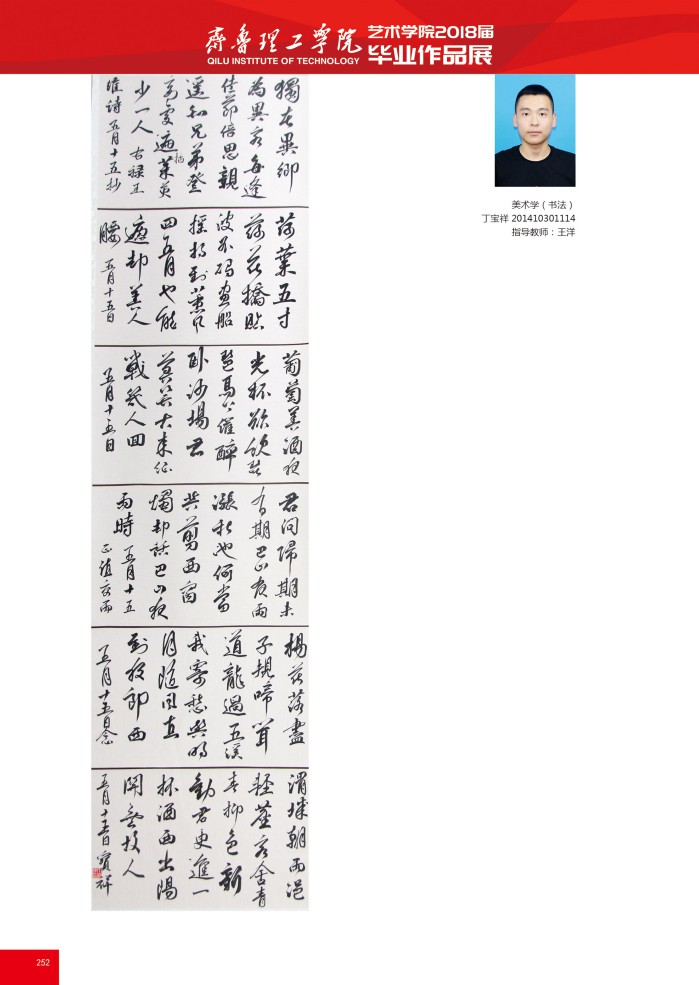 齊魯理工學院
QILU INSTITUTE OF TECHNOLOGY
艺术学院2018届
毕业作品展
獨在異鄉
為異客每逢
佳節倍思親
遙知兄弟登
高處遍茱萸
插
少一人 右録王
維詩 五月十五抄
荷葉五寸
荷花嬌貼
波不碍畫船
摇摇到薰風
四五月也能
遮却美人
腰 五月十五日
葡萄美酒夜
光杯欲飲琵
琶馬上催醉
卧沙場君
莫笑古来征
戰幾人回
五月十五日
君问歸期未
有期巴山夜雨
漲秋池何當
共剪西窗
燭却話巴山夜
雨時 五月十五
正值夜雨
楊花落盡
子規啼聞
道龍過五溪
我寄愁與明
月隨風直
到夜郎西
五月十五日
渭城朝雨浥
輕塵客舍青
青柳色新
勸君更進一
杯酒西出陽
關無故人
五月十五日 寶祥
美术学（书法）
丁宝祥 201410301114
指导教师：王洋
252